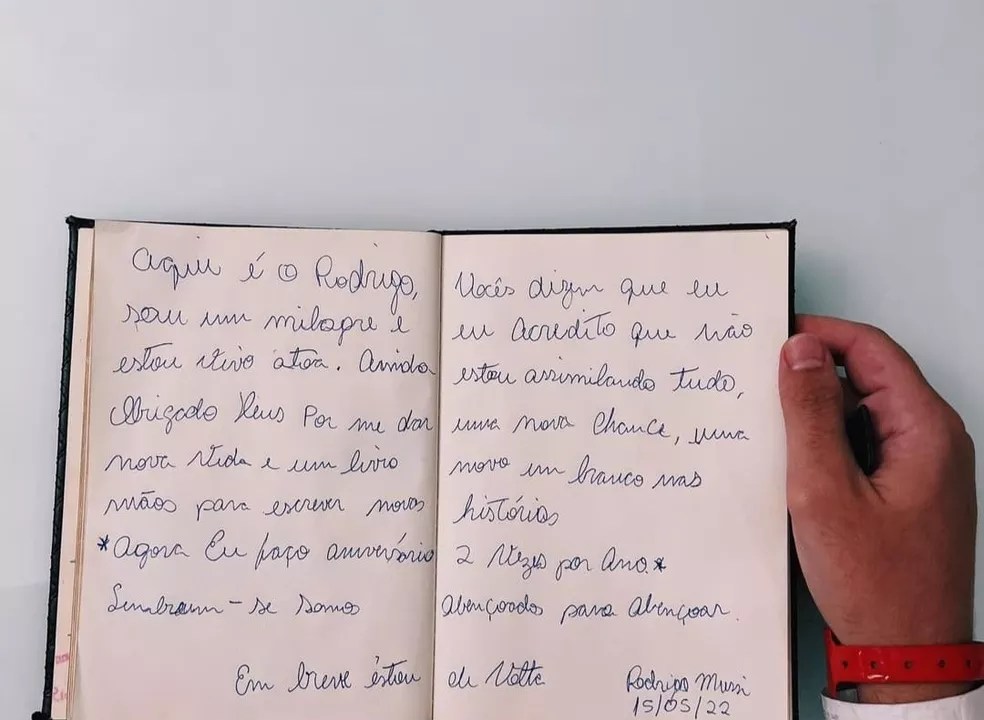 Aqui é o Rodrigo, Vocês dizem que eu
sou um milagre e eu acredito que não
estou vivo atoa. Ainda estou assimilando tudo,
Obrigado Deus Por me dar uma nova Chance, uma
nova vida e um livro novo em branco nas
mãos para escrever novas histórias
*Agora Eu faço aniversário 2 Vezes por Ano.*
Lembrem-se somos Abençoados para Abençoar.
Em breve estou de Volta Rodrigo Mussi
15/05/22